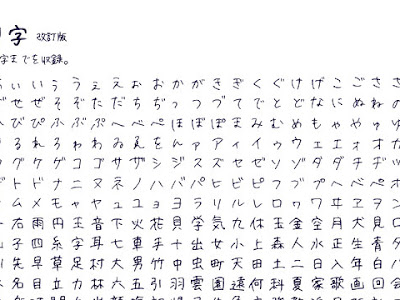 字 改訂版
字までを収録。
ぃいぅうぇえぉおかがきぎくぐけげこごさ
ぜそぞただちぢっつづてでとどなにぬねの
びぴふぶぷへべぺほぼぽまみむめもゃやゅゆ
るれろゎわゐゑをんァアィイゥウェエォオカ
グケゲコゴサザシジスズセゼソゾタダチヂッ
テデトドナニヌネノハバパヒビピフブプヘベペホ
ムメモャヤュユョヨラリルレロヮワヰヱヲ
右雨円王音下火花貝学気九休玉金空月犬見
子四糸字耳七車手十出女小上森人水正生青
先早草足村大男竹中虫町天田土二日入年白
名目立力林六五引羽雲園遠何科夏家歌画回